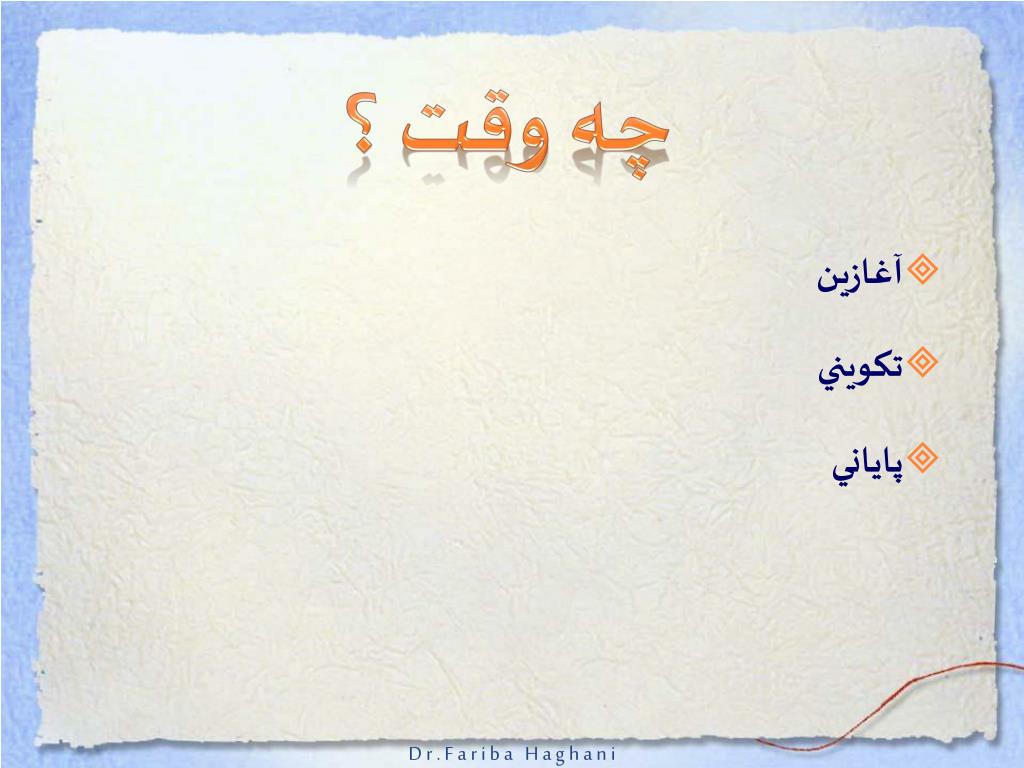 چه وقت ؟
آغازين
تكويني
پاياني
Dr.Fariba Haghani